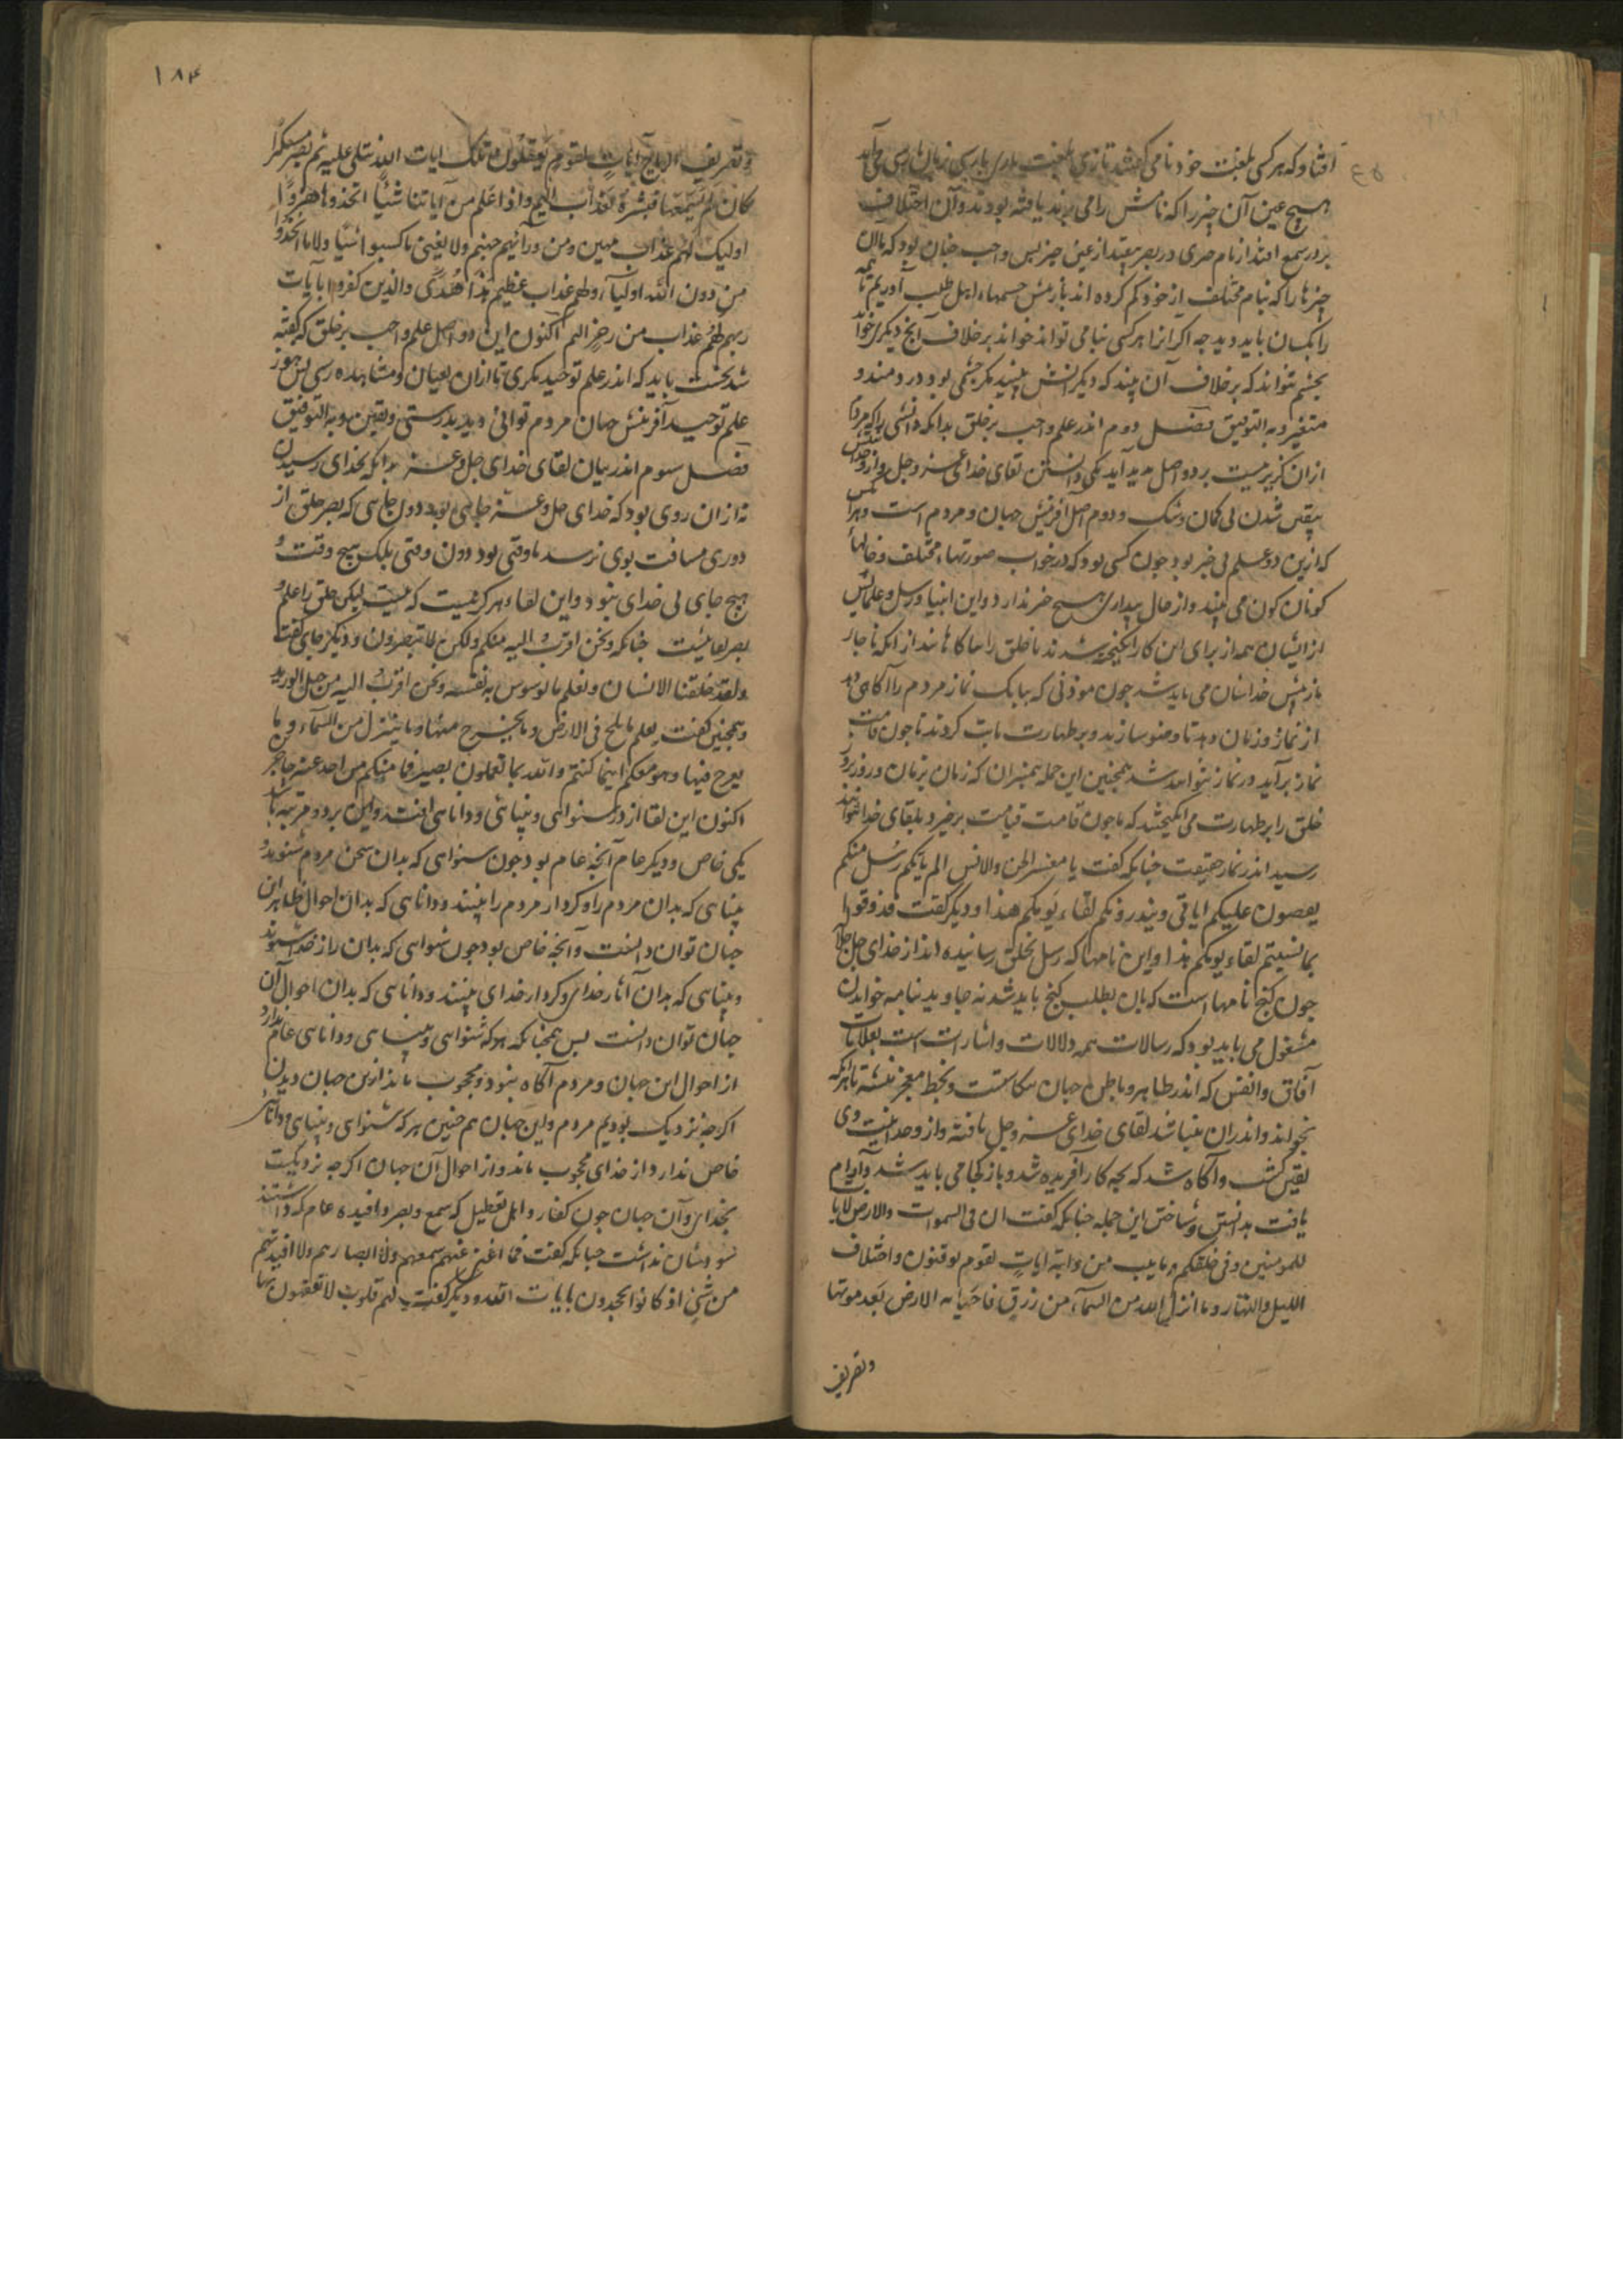 افتاد که هر کسی بلغت خود نامی کفتند تا زی بلغت بارسی زبان بارسی می آید
هیچ عین آن چیز را که نامش را می برند یافته بودند و آن اختلاف
بر در سمع افتد از نام حری در بصر بیفتد از عین چیز بس واجب جنان بود که ما آن
چیزها را که بنام مختلف از خود کم کرده اند باز مپش جسمهاء اهل طلب آوریم تا همه
را یکسان باید دید چه اکر آنرا هر کسی بنامی تواند خواند بر خلاف آنج دیکری خواند
بچشم نتواند که بر خلاف آن بیند که دیکرانش بینند مکر چشمی بود دردمند و
متغیر و به التوفیق فصل دوم اندر علم واجب بر خلق بدانکه دانشی را که مردم را
از آن کزیر نیست بر دو اصل بدید آید یکی دانستن لقای خدای عز و جل و از وحدانیتش
بیقین شدن بی کمان و شک و دوم اصل آفرینش جهان و مردم است و هر آنکس
که ازین دو علم بی خبر بود جون کسی بود که در خواب صورتهاء مختلف و خیالها
کوناکون می بیند و از حال بیداری هیچ خبر ندارد و این انبیا و رسل و علمایش
از ایشان همه از برای این کار انکیخته شدند تا خلق را اکاهانند از انکه ناجار
باز مپش خداشان می باید شد جون موذنی که ببانک نماز مردم را آکاهی دهد
از نماز و زمان دهد تا وضو سازند و بر طهارت ثابت کردند تا جون قامت
نماز بر آید در نماز توانند شد همجنین این جمله بیمبران که زمان بزمان و روز بروز
خلق را بر طهارت می انکیختند که تا جون قامت قیامت برخیزد بلقای خدا توانند
رسید اندر نماز حقیقت جنانکه کفت یا معشر الجن والانس الم یاتکم رسل منکم
یقصون علیکم ایاتی وینذرونکم لقاء یومکم هذا و دیکر کفت فذوقوا
بما نسیتم لقاء یومکم هذا و این نامها که رسل بخلق رسانیده اند از خدای جل جلاله
جون کنج نامها است که بآن بطلب کنج باید شد نه جاوید بنامه خواندن
مشغول می باید بود که رسالات همه دلالات و اشارات است بعلامات
آفاق و انفس که اندر ظاهر و باطن جهان بیکاشت و بخط معجز نبشته تا هر که
بخواند و اندران بینا شد لقای خدای عز و جل یافته و از وحدانیت وی
بیقین کشت و آکاه شد که بجه کار آفریده شد و باز کجا می باید شد و آرام
یافت بدانستن و شناختن این جمله جنانکه کفت ان فی السموات والارض لایات
للمومنین وفی خلقکم وما یبث من دابة ایات لقوم یوقنون واختلاف
اللیل والنهار وما انزل الله من السماء من رزق فاحیا به الارض بعد موتها
وتصریف
۱۸۴
وتصریف الریاح آیات لقوم یعقلون تلک ایات الله تتلی علیه ثم یصر مستکبرا
کان لم یسمعها فبشره بعذاب الیم واذا علم من آیاتنا شیئا اتخذوها هزوا
اولیک لهم عذاب مهین ومن ورائهم جهنم ولا یغنی ما کسبوا شیئا ولا ما اتخذوا
من دون الله اولیاء ولهم عذاب عظیم هذا هدی والذین کفروا بآیات
ربهم لهم عذاب من رجز الیم اکنون این دو اصل علم واجب بر خلق که کفته
شد نخست باید که اندر علم توحید نکری تا از آن بعیان و مشاهده رسی بس هنوز
علم توحید آفرینش جهان مردم توانی دید بدرستی و یقین و به التوفیق
فصل سوم اندر بیان لقای خدای جل و عز بدانکه بخدای رسیدن
نه از آن روی بود که خدای جل و عز جایی بود دون جایی که بصر خلق از
دوری مسافت بوی نرسد یا وقتی بود دون وقتی بلک هیچ وقت و
هیچ جای بی خدای نبود و این لقا هرکز نیست که نیست لیکن خلق را علم و
بصر لقا نیست جنانکه ونحن اقرب الیه منکم ولکن لا تبصرون و دیکر جای کفت
ولقد خلقنا الانسان ونعلم ما توسوس به نفسه ونحن اقرب الیه من حبل الورید
و همجنین کفت یعلم ما یلج فی الارض وما یخرج منها وما ینزل من السماء وما
یعرج فیها وهو معکم اینما کنتم والله بما تعملون بصیر فما منکم من احد عنه حاجزین
اکنون این لقا از در شنوائی و بینائی و دانایی افتد و این بر دو مرتبه باشد
یکی خاص و دیکر عام آنجه عام بود جون شنوایی که بدان سخن مردم شنوند و
بینایی که بدان مردم را و کردار مردم را بینند و دانایی که بدان احوال ظاهر این
جهان توان دانست و آنجه خاص بود جون شنوایی که بدان راز خدا شنوند
و بینایی که بدان آثار خدای و کردار خدای بینند و دانایی که بدان احوال آن
جهان توان دانست بس همجنانکه هر که شنوایی و بینایی و دانایی عام ندارد
از احوال این جهان و مردم آکاه نبود و محجوب ماند از این جهان دیدن
اکرجه نزدیک بودیم مردم و این جهان هم جنین هر که شنوایی و بینایی و دانایی
خاص ندارد از خدای محجوب ماند و از احوال آن جهان اکرجه نزدیکست
بخدای و آن جهان جون کفار و اهل تعطیل که سمع و بصر و افیده عام که داشتند
سودشان نداشت جنانکه کفت فما اغنی عنهم سمعهم ولا ابصارهم ولا افیدتهم
من شئ اذ کانوا یجحدون بایات الله و دیکر کفت لهم قلوب لا یفقهون بها